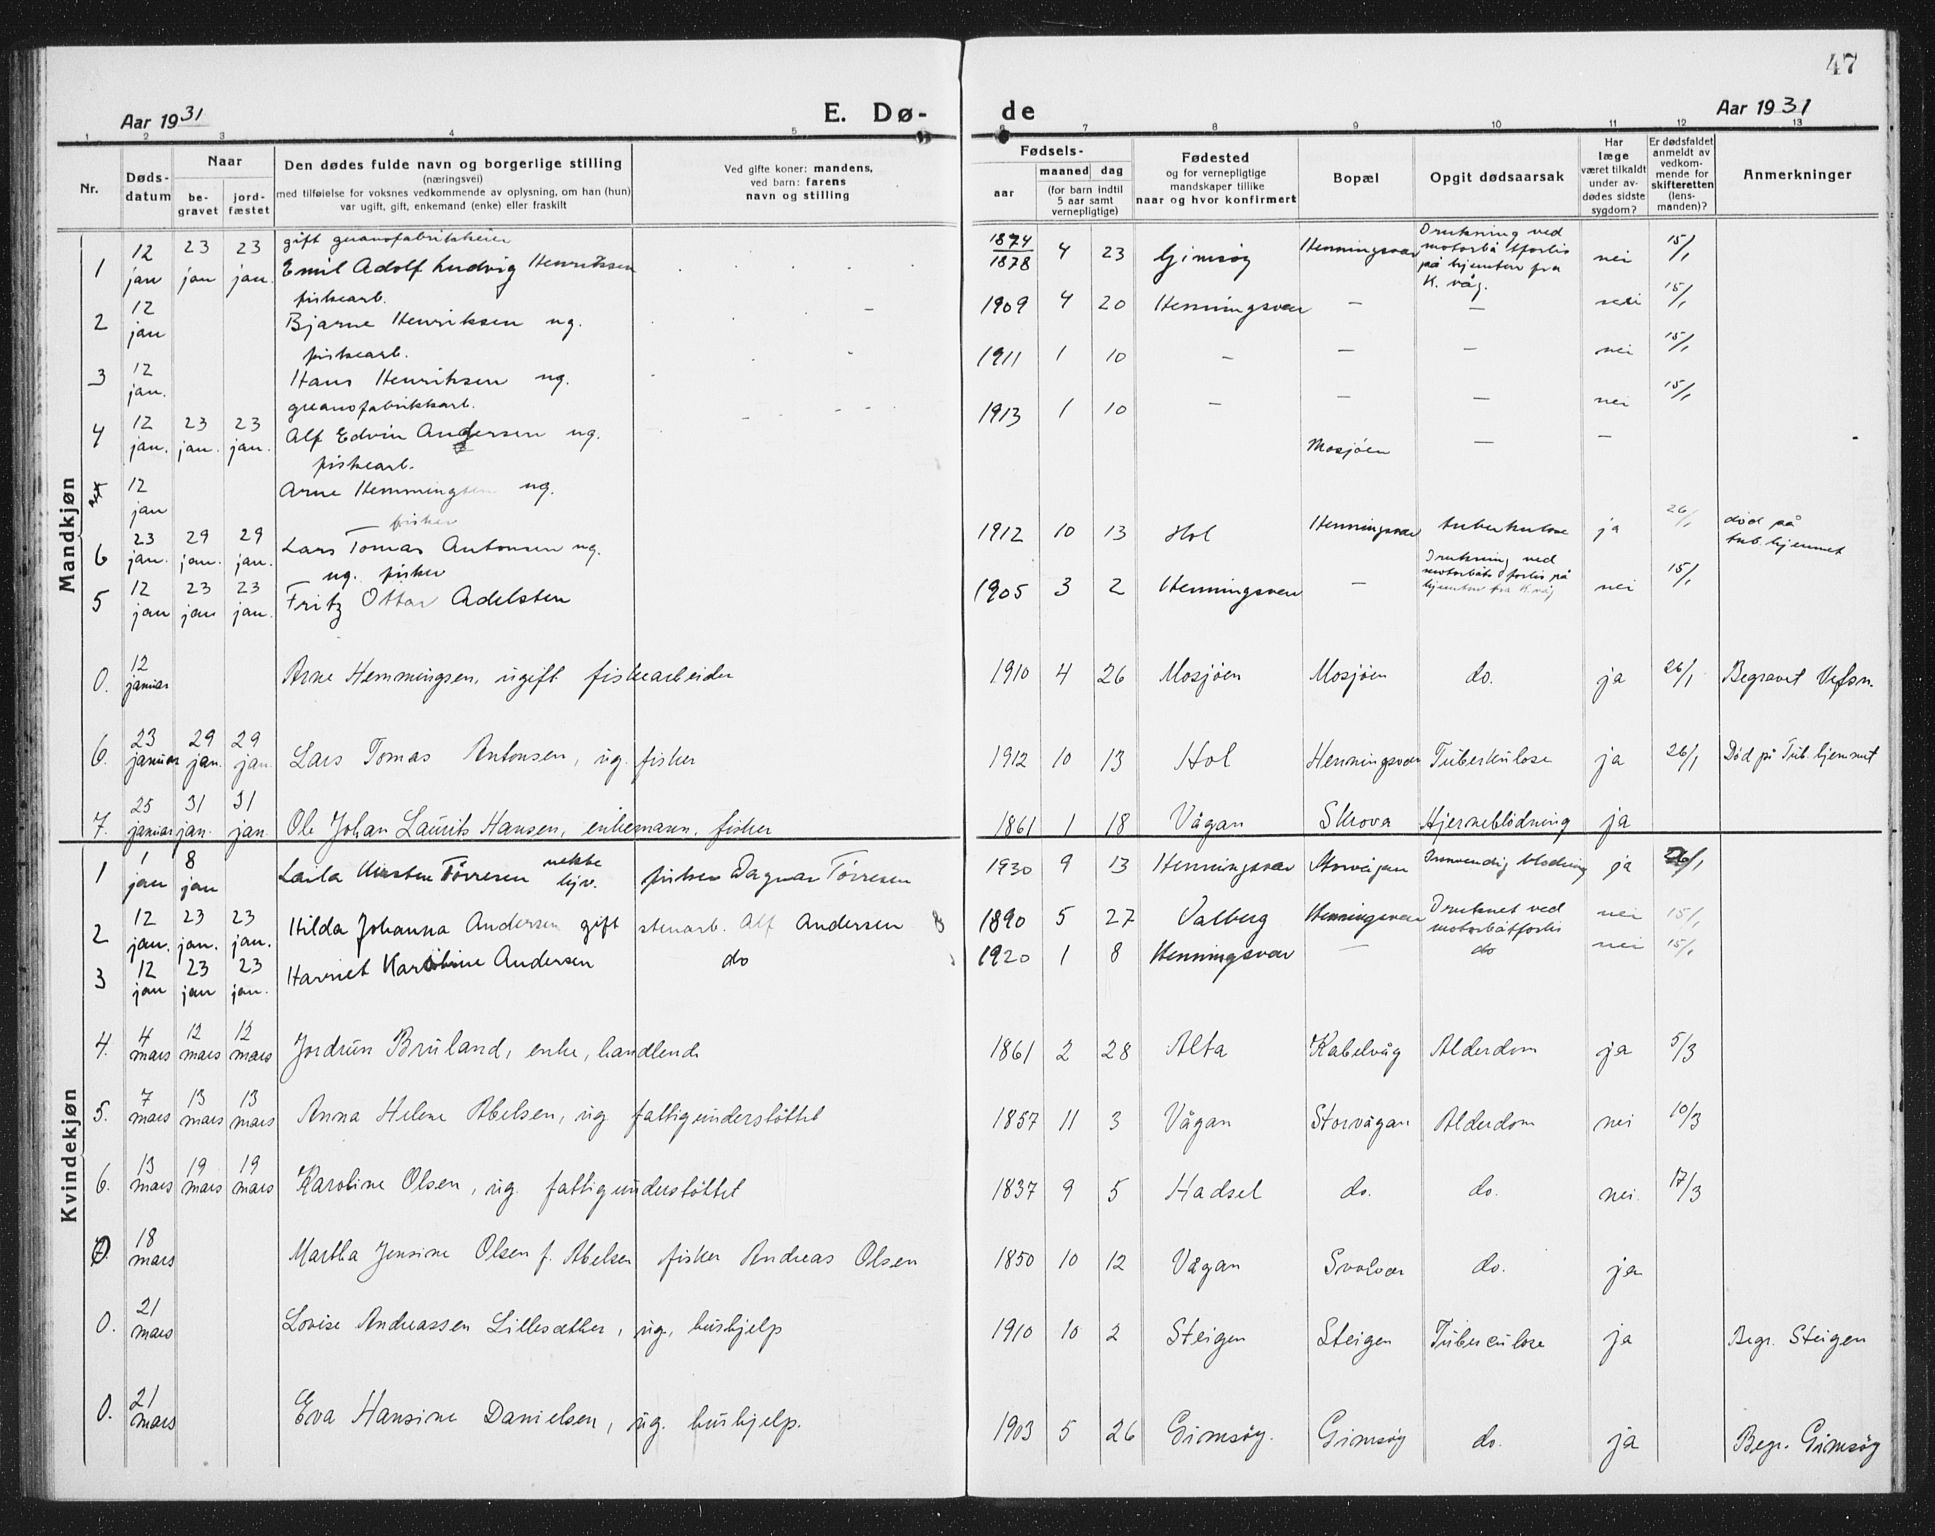 47
Aar 1931
E. Dø-
de
Aar 1931
1 2 3 4 5 6 7 8 9 10 11 12 13
Nr.
Døds-
datum
Naar
be-
gravet
jord-
fæstet
Den dødes fulde navn og borgerlige stilling
(næringsvei)
med tilføielse for voksnes vedkommende av oplysning, om han (hun)
var ugift, gift, enkemand (enke) eller fraskilt
Ved gifte koner: mandens,
ved barn: farens
navn og stilling
Fødsels-
aar
maaned dag
(for barn indtil
5 aar samt
vernepligtige)
Fødested
og for vernepligtige
mandskaper tillike
naar og hvor konfirmert
Bopæl
Opgit dødsaarsak
Har
læge
været tilkaldt
under av-
dødes sidste
sygdom?
Er dødsfaldet
anmeldt av
vedkom-
mende for
skifteretten
(lens-
manden)?
Anmerkninger
Mandkjøn
gift guanofabrikkeier
1 12 jan 23 jan 23 jan. Emil Adolf Ludvig Henriksen 1874 1878 4 23 Gimsøy Henningsvær Drukning ved motorbåtforlis på hjemtur fra K. våg. nei 15/1
fiskearb.
2 12 jan Bjarne Henriksen ug. — 1909 4 20 Henningsvær — — nei 15/1
fiskearb.
3 12 jan. Hans Henriksen ug. 1911 1 10 — — — nei 15/1
guanofabrikkarb.
4 12 jan. 23 jan. 23 jan. Alf Edvin Andersen ug. 1913 1 10 — — — nei 15/1
fiskearb.
12 jan Arne Hemmingsen ug. Mosjöen — —
fisker
6 23 jan. 29 jan. 29 jan. Lars Tomas Antonsen ug. 1912 10 13 Hol Henningsvær tuberkulose ja 26/1 død på tub. hjemmet
ug. fisker
5 12 jan 23 jan 23 jan. Fritz Ottar Adelsten 1905 3 2 Henningsvær — Drukning ved motorbåtsforlis på hjemtur fra K.våg nei 15/1
0. 12 januar Arne Hemmingsen, ugift fiskearbeider 1910 4 26 Mosjöen Mosjöen do. ja 26/1 Begravet Vefsn.
6. 23 januar 29 jan. 29 jan. Lars Tomas Antonsen, ug. fisker 1912 10 13 Hol Henningsvær Tuberkulose ja 26/1 Död på Tub. hjemmet
7. 25 januar 31 jan. 31 jan. Ole Johan Laurits Hansen, enkemann, fisker 1861 1 18 Vågan Skrova Hjerneblödning ja
Kvindekjøn
1 1 jan 8 jan Laila Kirsten Tørresen fisker Dagnar Tørresen 1930 9 13 Henningsvær Storvågan Innvendig blødning ja 26/1
2 12 jan. 23 jan. 23 jan. Hilda Johanna Andersen gift stenarb. Alf Andersen 1890 5 27 Valberg Henningsvær Druknet ved motorbåtforlis nei 15/1
3 12 jan 23 jan 23 jan. Harriet Karoline Andersen do 1920 1 8 Henningsvær — do nei 15/1
4. 4 mars 12 mars 12 mars Jordrun Bruland, enke, handlende 1861 2 28 Alta Kabelvåg Alderdom ja 5/3
5. 7 mars 13 mars 13 mars Anna Helene Abelsen, ug fattigunderstøttet 1857 11 3 Vågan Storvågan Alderdom nei 10/3
6. 13 mars 19 mars 19 mars Karoline Olsen, ug. fattigunderstöttet 1837 9 5 Hadsel do. do. nei. 17/3
0. 18 mars Martha Jensine Olsen f. Abelsen fisker Andreas Olsen 1850 10 12 Vågan Svolvær do. ja
0. 21 mars Lovise Andreassen Lillesæther, ug. hushjelp 1910 10 2 Steigen Steigen Tuberculose ja Begr. Steigen
0. 21 mars Eva Hansine Danielsen, ug. hushjelp. 1903 5 26 Gimsøy. Gimsøy do. ja Begr. Gimsøy